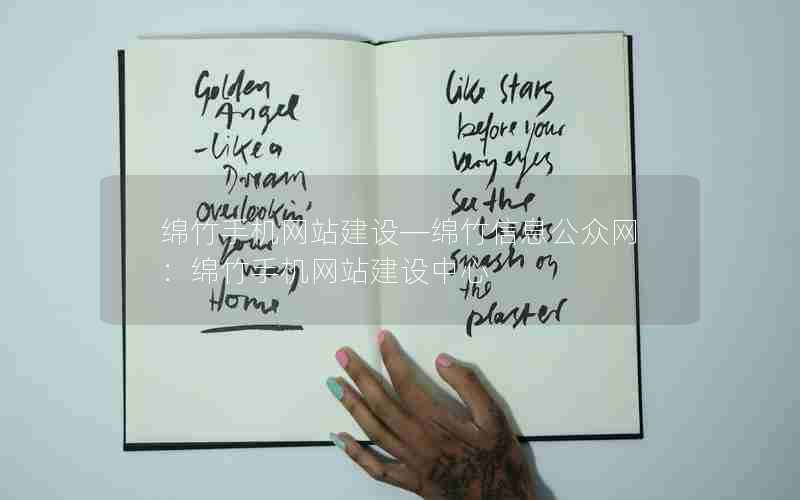 Golden
Angel
-Like a
Dream
overlookin'
your
way
Home
Like Stars
before your
very eyes
See the
smash on
the
plaster
绵竹手机网站建设—绵竹信息公众网
：绵竹手机网站建设中心